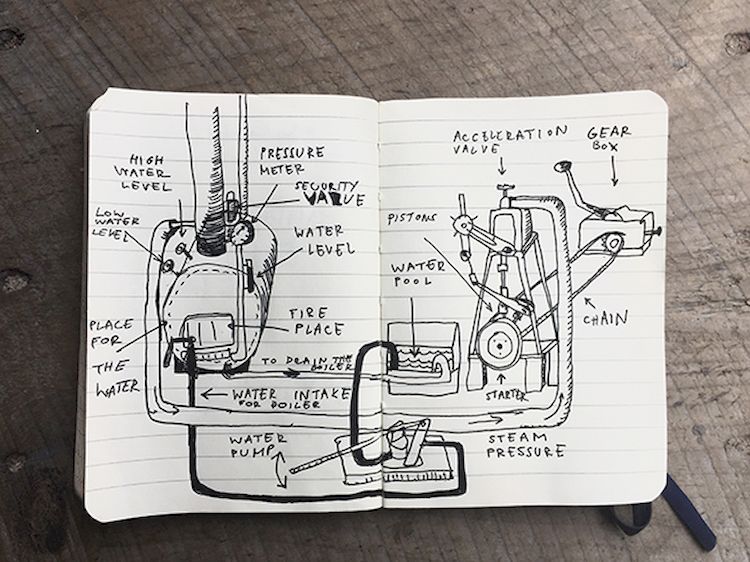 HIGH
WATER
LEVEL
LOW WATER
LEVEL
PRESSURE
METER
SECURITY
VALVE
WATER
LEVEL
PLACE
FOR
THE
WATER
FIRE
PLACE
TO DRAIN THE
BOILER
WATER INTAKE
FOR BOILER
WATER
PUMP
ACCELERATION
VALVE
GEAR
BOX
PISTONS
WATER
POOL
CHAIN
STARTER
STEAM
PRESSURE